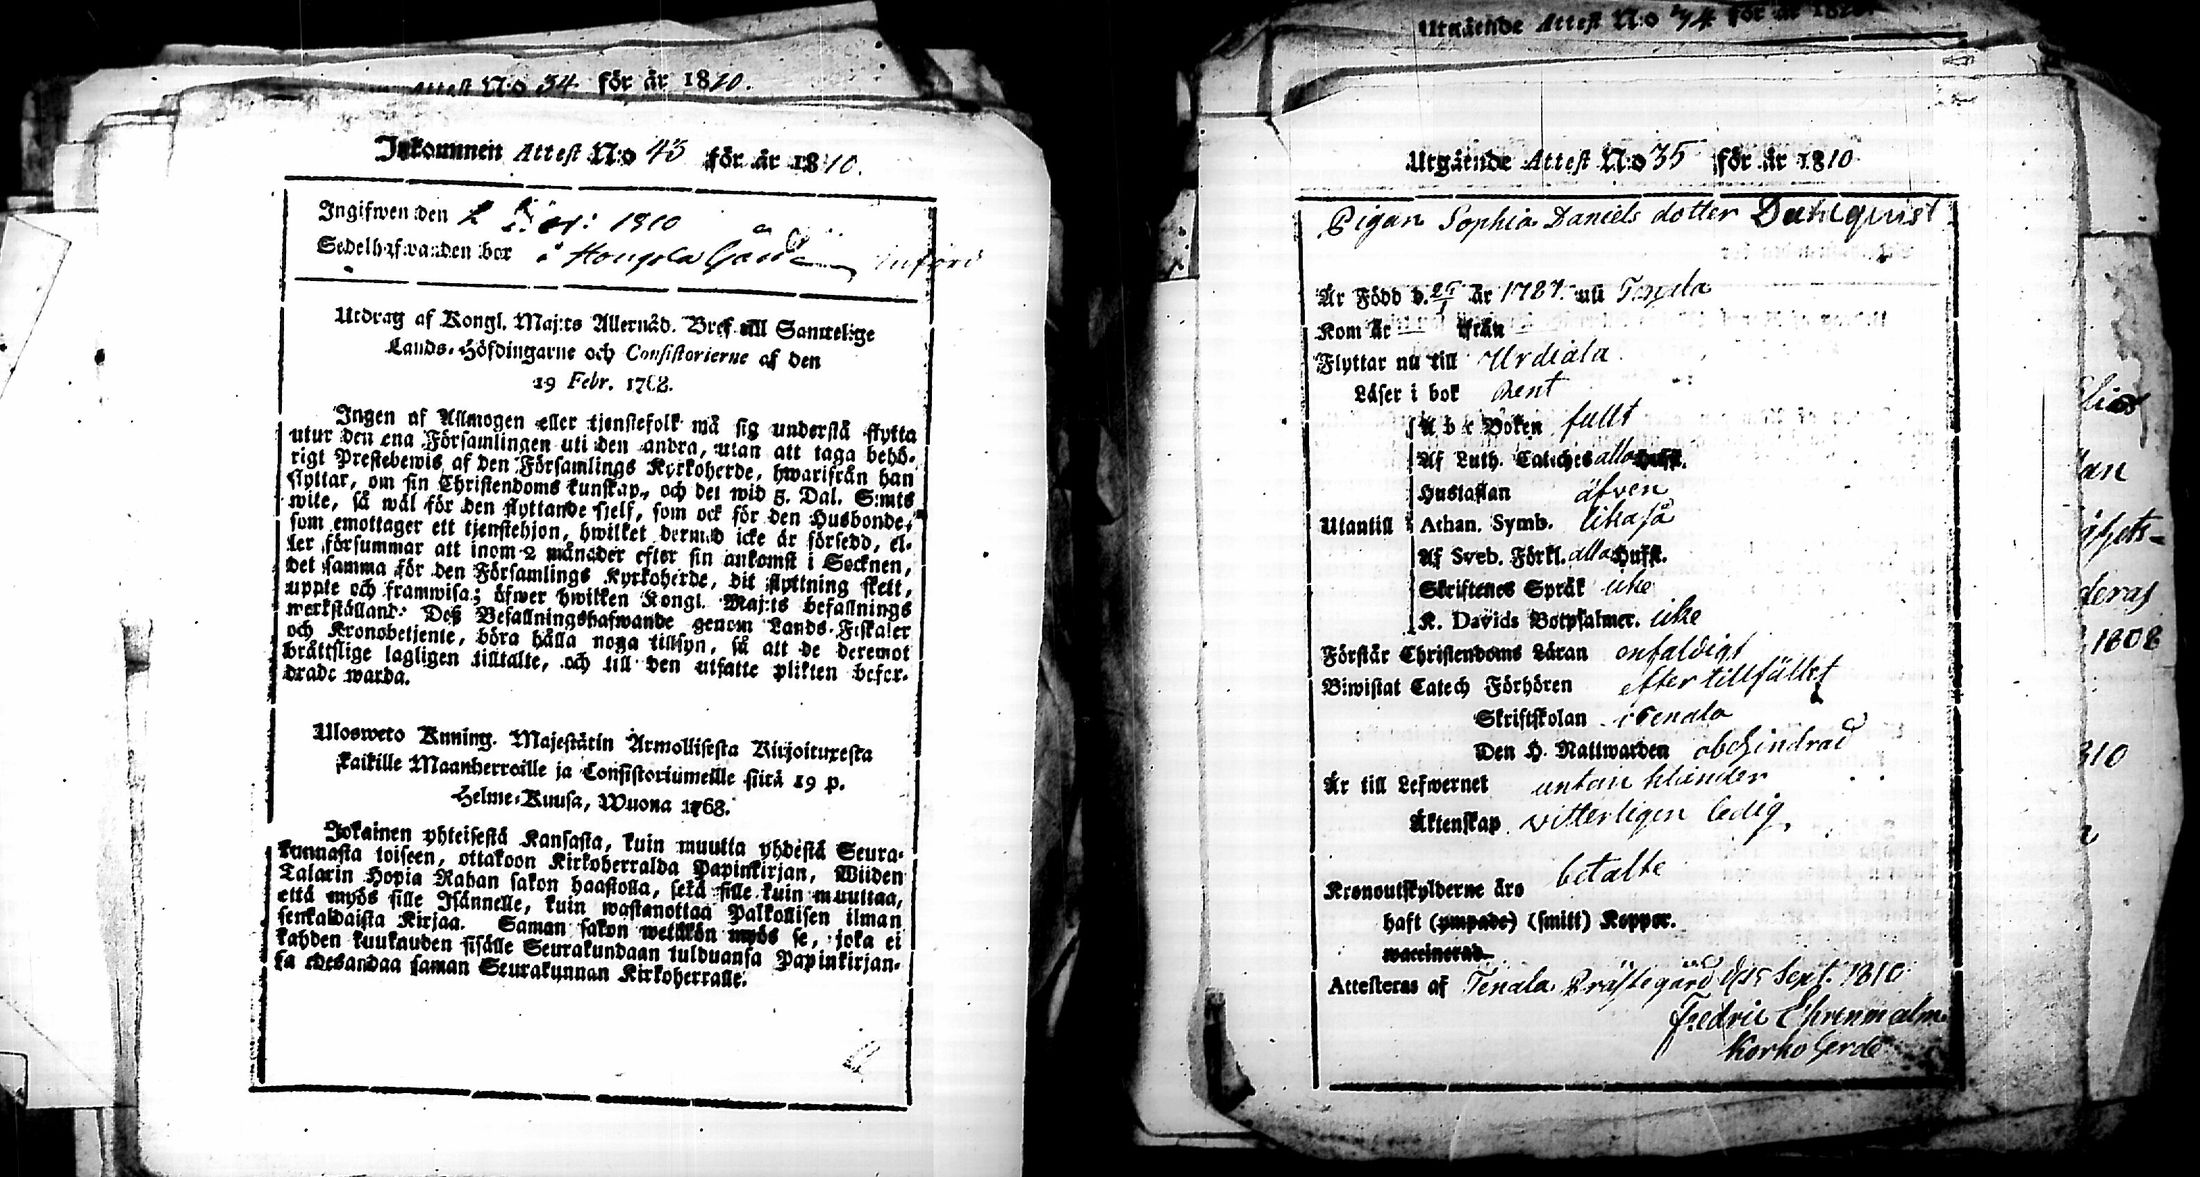 Attest N:o 34 för år 1810.
Inkommen Attest N:o 43 för år 1810.
Ingifwen den 2 1810
Sedelhafwanden bor å införd
Utdrag af Kongl. Maj:ts Allernåd. Bref till Samtelige
Lands-Höfdingarne och Consistorierne af den
19 Febr. 1768.
Ingen af Allmogen eller tjenstefolk må sig understå flytta
utur den ena Församlingen uti den andra, utan att taga behö-
rigt Prestebewis af den Församlings Kyrkoherde, hwarifrån han
flyttar, om sin Christendoms kunskap, och det wid 5. Dal. S:mts
wite, så wäl för den flyttande sjelf, som ock för den Husbonde,
som emottager ett tjenstehjon, hwilket dermed icke är försedd, el-
ler försummar att inom 2 månader efter sin ankomst i Socknen,
det samma för den Församlings Kyrkoherde, dit flyttning skett,
uppte och framwisa; öfwer hwilken Kongl. Maj:ts befallnings
werkställand: Deß Befallningshafwande genom Lands-Fiskaler
och Kronobetjente, böra hålla noga tillsyn, så att de deremot
bråttslige lagligen tilltalte, och till den utsatte plikten befor-
drade warda.
Ulosweto Kuning. Majestätin Armollisesta Kirjoituxesta
kaikille Maanherroille ja Consistoriumeille siitä 19 p.
Helme-Kuusa, Wuona 1768.
Jokainen yhteisestä Kansasta, kuin muutta yhdestä Seura-
kunnasta toiseen, ottakoon Kirkoherralda Papinkirjan, Wiiden
Talarin Hopia Rahan sakon haastolla, sekä sille kuin muuttaa,
että myös sille Isännelle, kuin wastanottaa Palkollisen ilman
senkaldaista Kirjaa. Saman sakon wetäkön myös se, joka ei
kahden kuukauden sisälle Seurakundaan tulduansa Papinkirjan-
sa edesandaa saman Seurakunnan Kirkoherralle.
Utgående Attest N:o 34 för år
Utgående Attest N:o 35 för år 1810
Pigan Sophia Daniels dotter Dahlquist
Är Född d. år 1787. uti Tenala
Kom år från
Flyttar nu till Urdiala
Läser i bok rent
A b c Boken fullt
Af Luth. Catches alla hufst.
Hustaflan äfven
Utantill Athan. Symb. likaså
Af Sveb. Förkl. alla Hufst.
Skriftenes Språk icke
K. Davids Botpsalmer. icke
Förstår Christendoms Läran enfaldigt
Biwistat Catech Förhören efter tillfället
Skriftskolan i Tenala
Den H. Nattwarden obehindrad
Är till Lefwernet untan klander
Äktenskap witterligen ledig.
Kronoutskylderne äro betalte
haft (ympade) (smitt) Koppor.
waccinerad.
Attesteras af Tenala Prästegård d. 15 Sept. 1810
Fredric Ehrenmalm
Kyrkoherde
1808